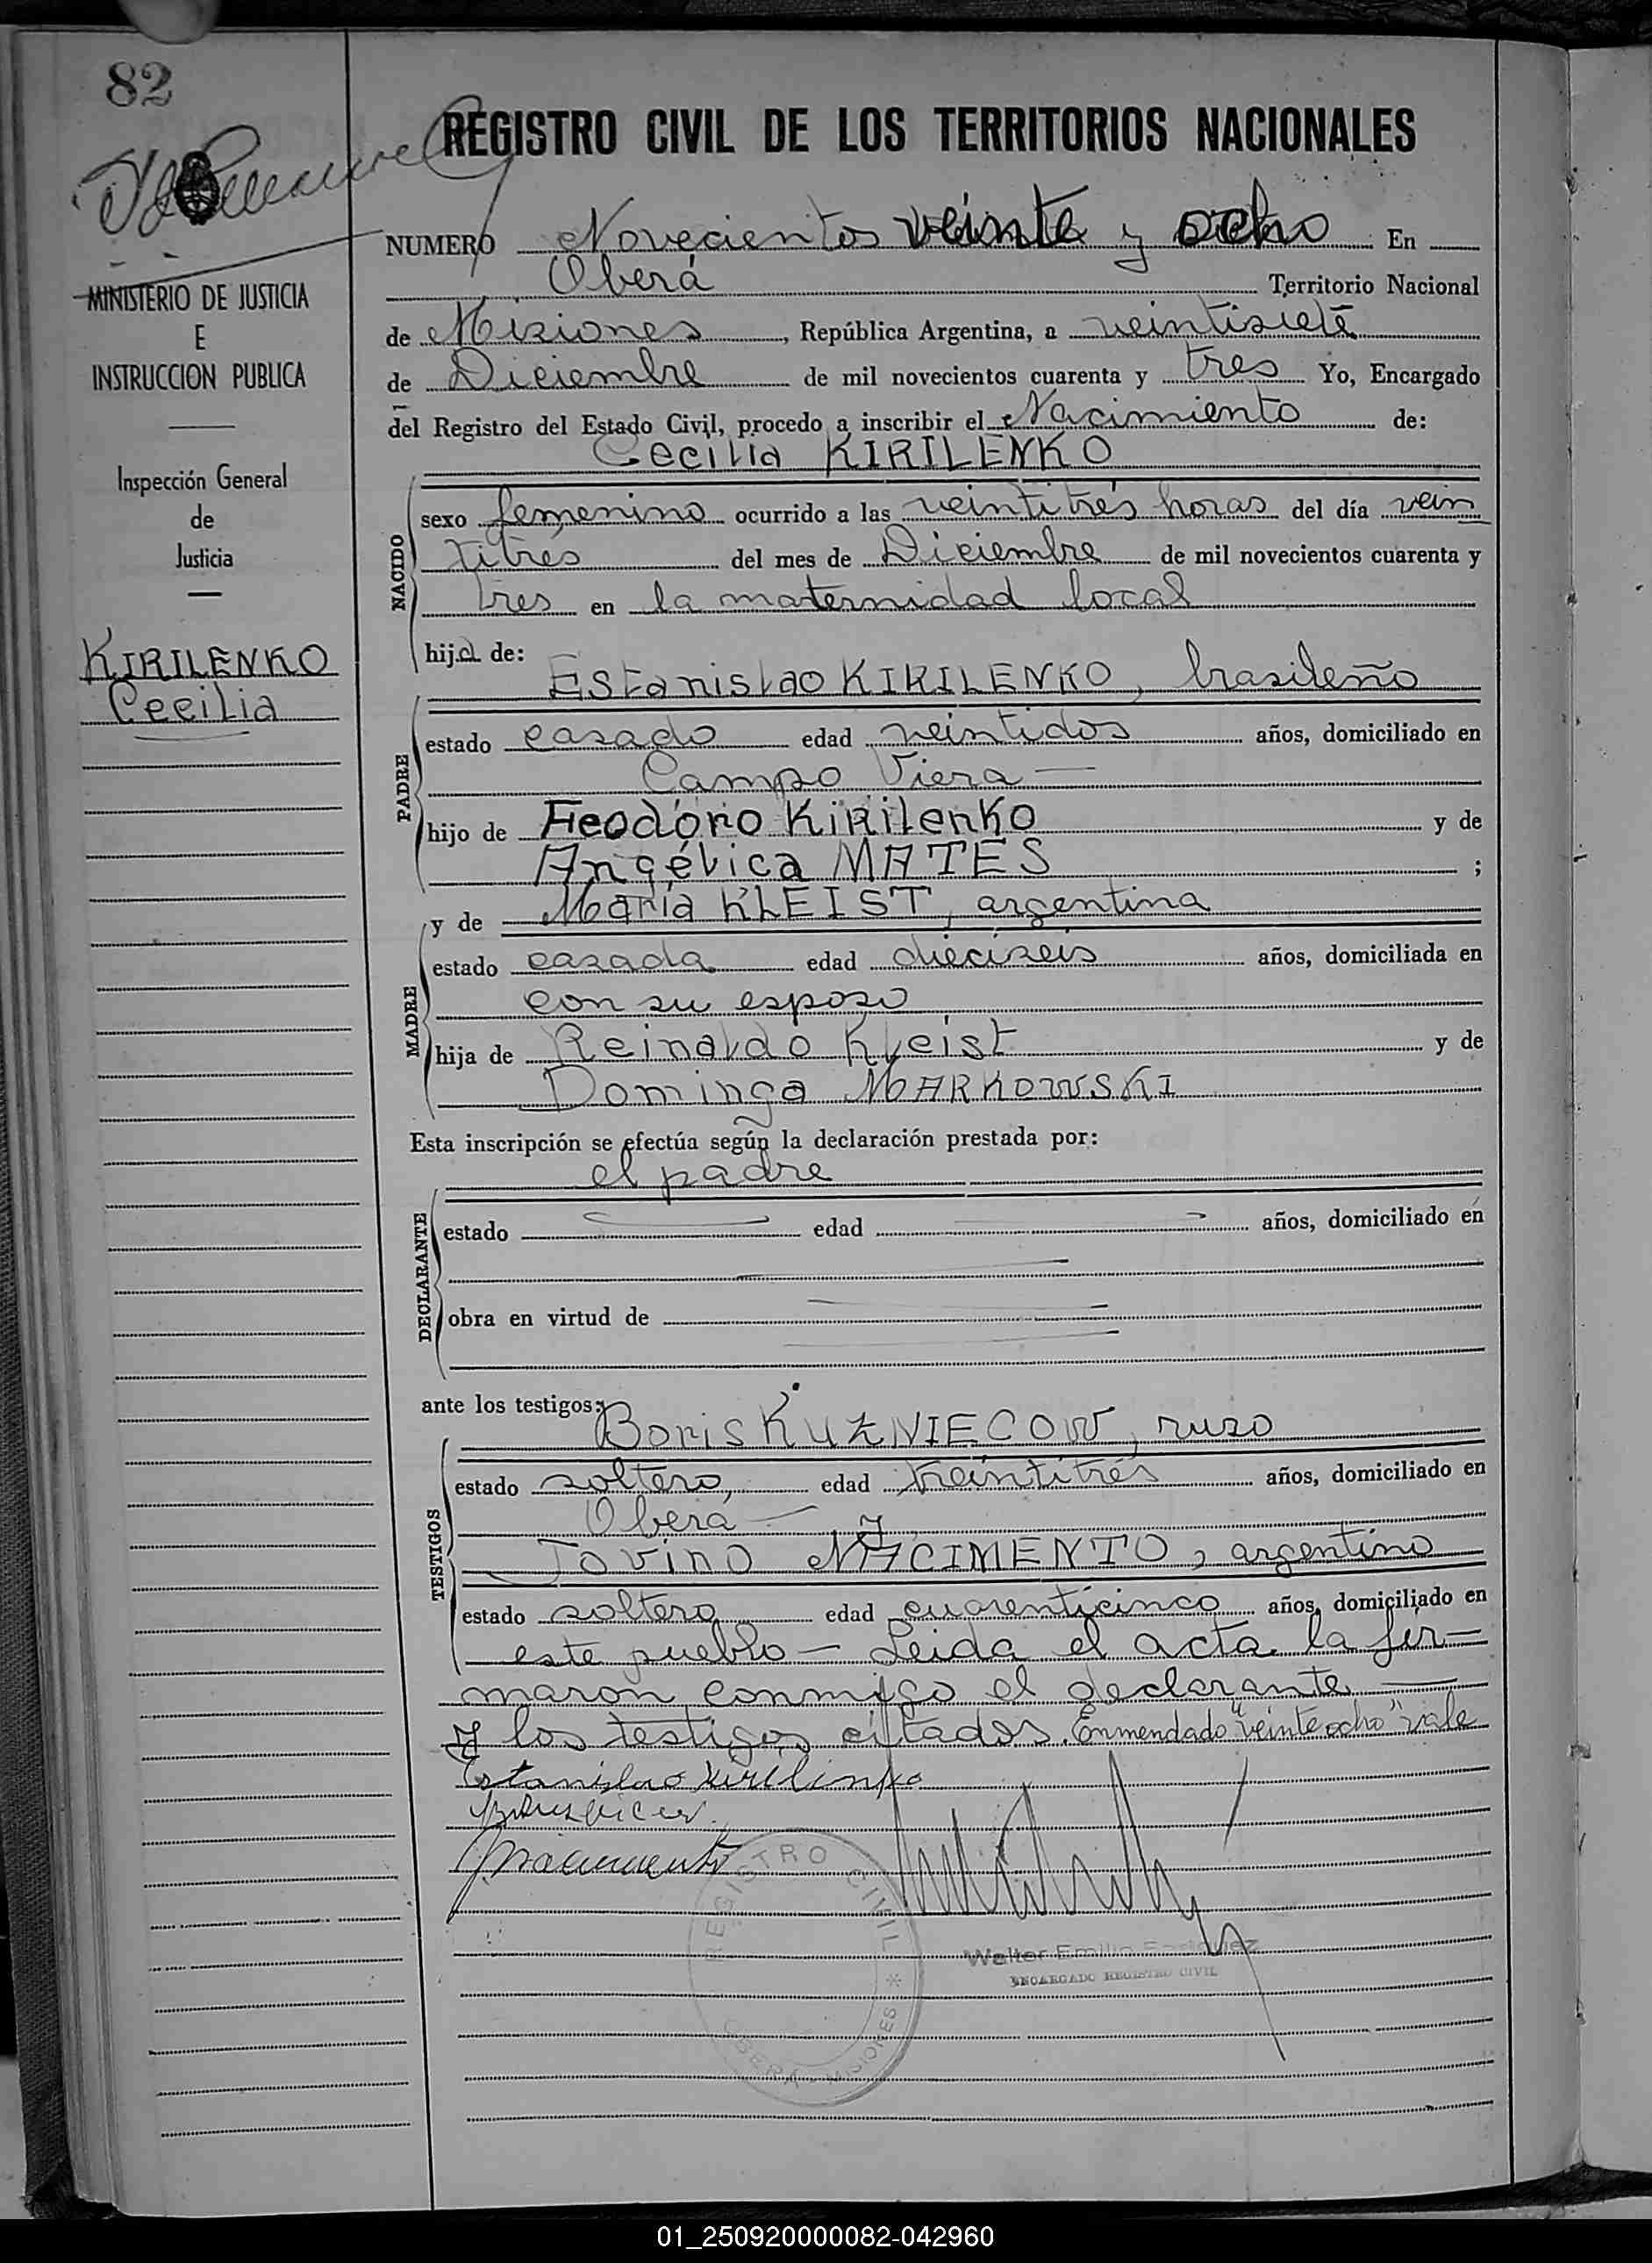 82
REGISTRO CIVIL DE LOS TERRITORIOS NACIONALES
NUMERO Novecientos veinte y ocho En
Oberá Territorio Nacional
de Misiones, República Argentina, a veintisiete
de Diciembre de mil novecientos cuarenta y tres Yo, Encargado
del Registro del Estado Civil, procedo a inscribir el Nacimiento de:
Cecilia KIRILENKO
MINISTERIO DE JUSTICIA
E
INSTRUCCION PUBLICA
Inspección General
de
Justicia
KIRILENKO
Cecilia
NACIDO
sexo femenino ocurrido a las veintitrés horas del día vein
titres del mes de Diciembre de mil novecientos cuarenta y
tres en la maternidad local
hija de:
Estanislao KIRILENKO, brasileño
PADRE
estado casado edad veintidos años, domiciliado en
Campo Viera —
hijo de Feodóro Kirilenko y de
Angélica MATES ;
y de María KLEIST, argentina
MADRE
estado casada edad dieciseis años, domiciliada en
con su esposo
hija de Reinaldo Kleist y de
Dominga MARKOWSKI
Esta inscripción se efectúa según la declaración prestada por:
el padre
DECLARANTE
estado edad años, domiciliado en
obra en virtud de
ante los testigos:
Boris KUZNIECOW, ruso
TESTIGOS
estado soltero, edad treintitrés años, domiciliado en
Oberá — y
Jovino NACIMENTO, argentino
estado soltero edad cuarenticinco años, domiciliado en
este pueblo — Leida el acta la fir-
maron conmigo el declarante —
y los testigos citados. Enmendado "veinte ocho" vale
Estanislao Kirilinko
REGISTRO CIVIL * OBERÁ - MISIONES
Walter Emilio Rodriguez
ENCARGADO REGISTRO CIVIL
01_250920000082-042960